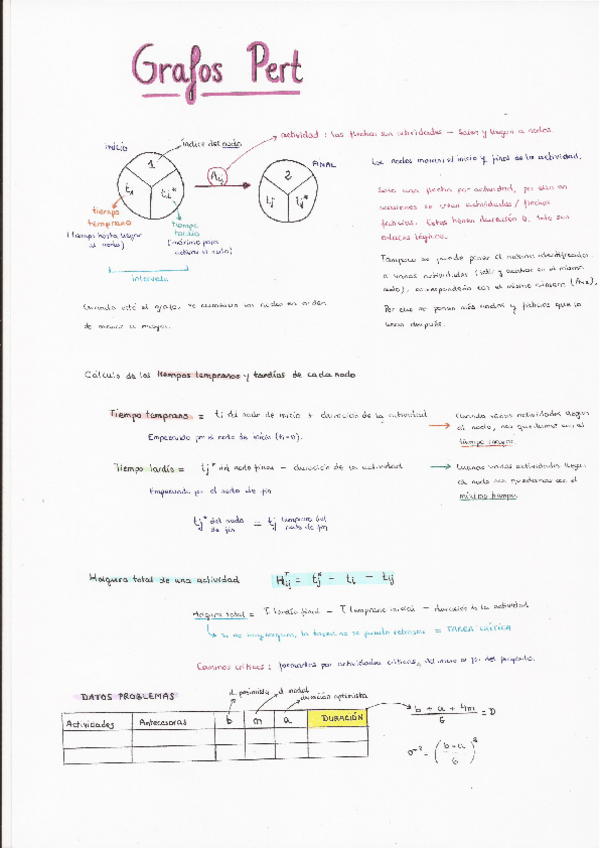 Grafos Pert
actividad : las flechas son actividades – salen y llegan a nodos.
índice del nodo
inicio
1
ti
ti*
Aij
FINAL
2
tj
tj*
Los nodos marcan el inicio y fines de la actividad.
tiempo
temprano
(tiempo hasta llegar
al nodo)
tiempo
tardío
(máximo para
al nodo)
intervalo
Solo una flecha por actividad, por ello en
ocasiones se crean actividades / flechas
ficticias. Estas tienen duración 0, solo son
enlaces lógicos.
Tampoco se puede poner el mismo identificador
a varias actividades (salir y acabar en el mismo
nodo), el mismo número
Por ello se ponen más nodos y ficticias que lo
unan después.
Cuando esté el grafo, se enumeran los nodos en orden
de menor a mayor.
Cálculo de los tiempos tempranos y tardíos de cada nodo
Tiempo temprano = ti del nodo de inicio + duración de la actividad
Empezando por el nodo de inicio (ti=0).
Cuando varias actividades llegan
al nodo, nos quedamos con el
tiempo mayor.
Tiempo tardío = tj* del nodo final – duración de la actividad
Empezando por el nodo de fin
Cuando varias actividades llegan
al nodo nos quedamos con el
mínimo tiempo.
tj* del nodo de fin = tj temprano del nodo de fin
Holgura total de una actividad
H^T_ij = tj* – ti – tij
Holgura total = T tardío final – T temprano inicial – duración de la actividad
↳ si no hay holgura, la tarea no se puede retrasar = TAREA CRÍTICA
Caminos críticos : formados por actividades críticas, del inicio al fin del proyecto.
DATOS PROBLEMAS
d. pesimista
d. modal
duración optimista
Actividades Antecesoras b m a DURACIÓN
b + a + 4m / 6 = D
σ² = (b - a / 6)²